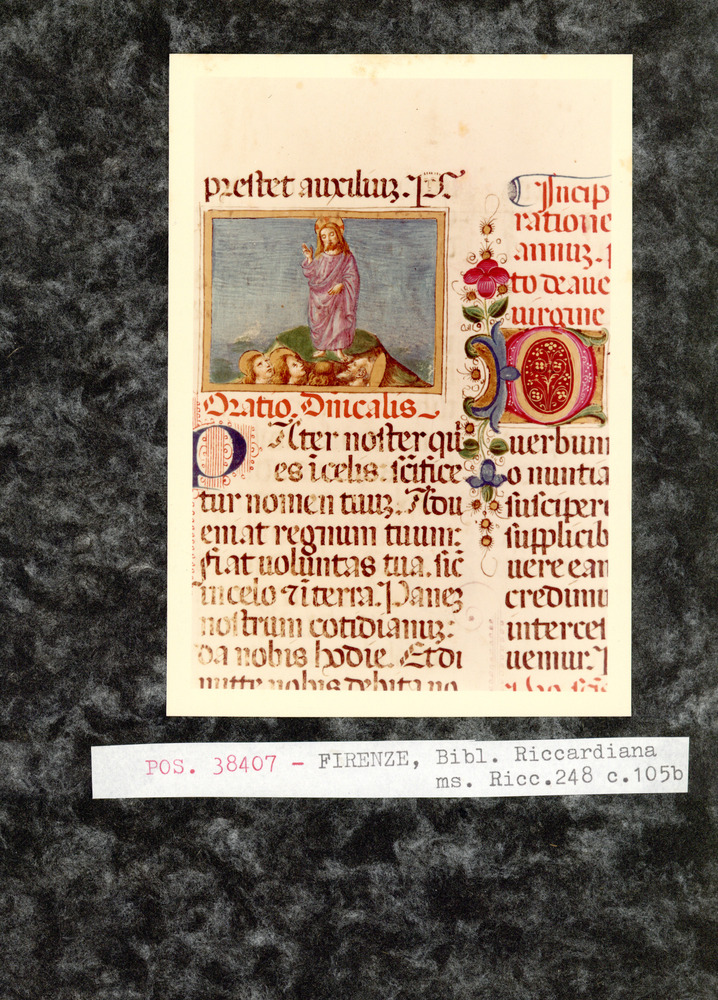 prestet auxiliuz. P
Oratio. Dnicalis
Pater noster qui
es i celis. scifice
tur nomen tuuz. Adu
eniat regnum tuum:
fiat uoluntas tua. sic
in celo ⁊ i terra. Panez
nostrum cotidianuz:
da nobis hodie. Et di
mitte nobis debita no
Incip
ratione
annuz.
to de aue
uirgine
uerbum
o nuntia
suscipere
supplicib
uere ean
credimu
interces
uemur.
POS. 38407 - FIRENZE, Bibl. Riccardiana
ms. Ricc.248 c.105b